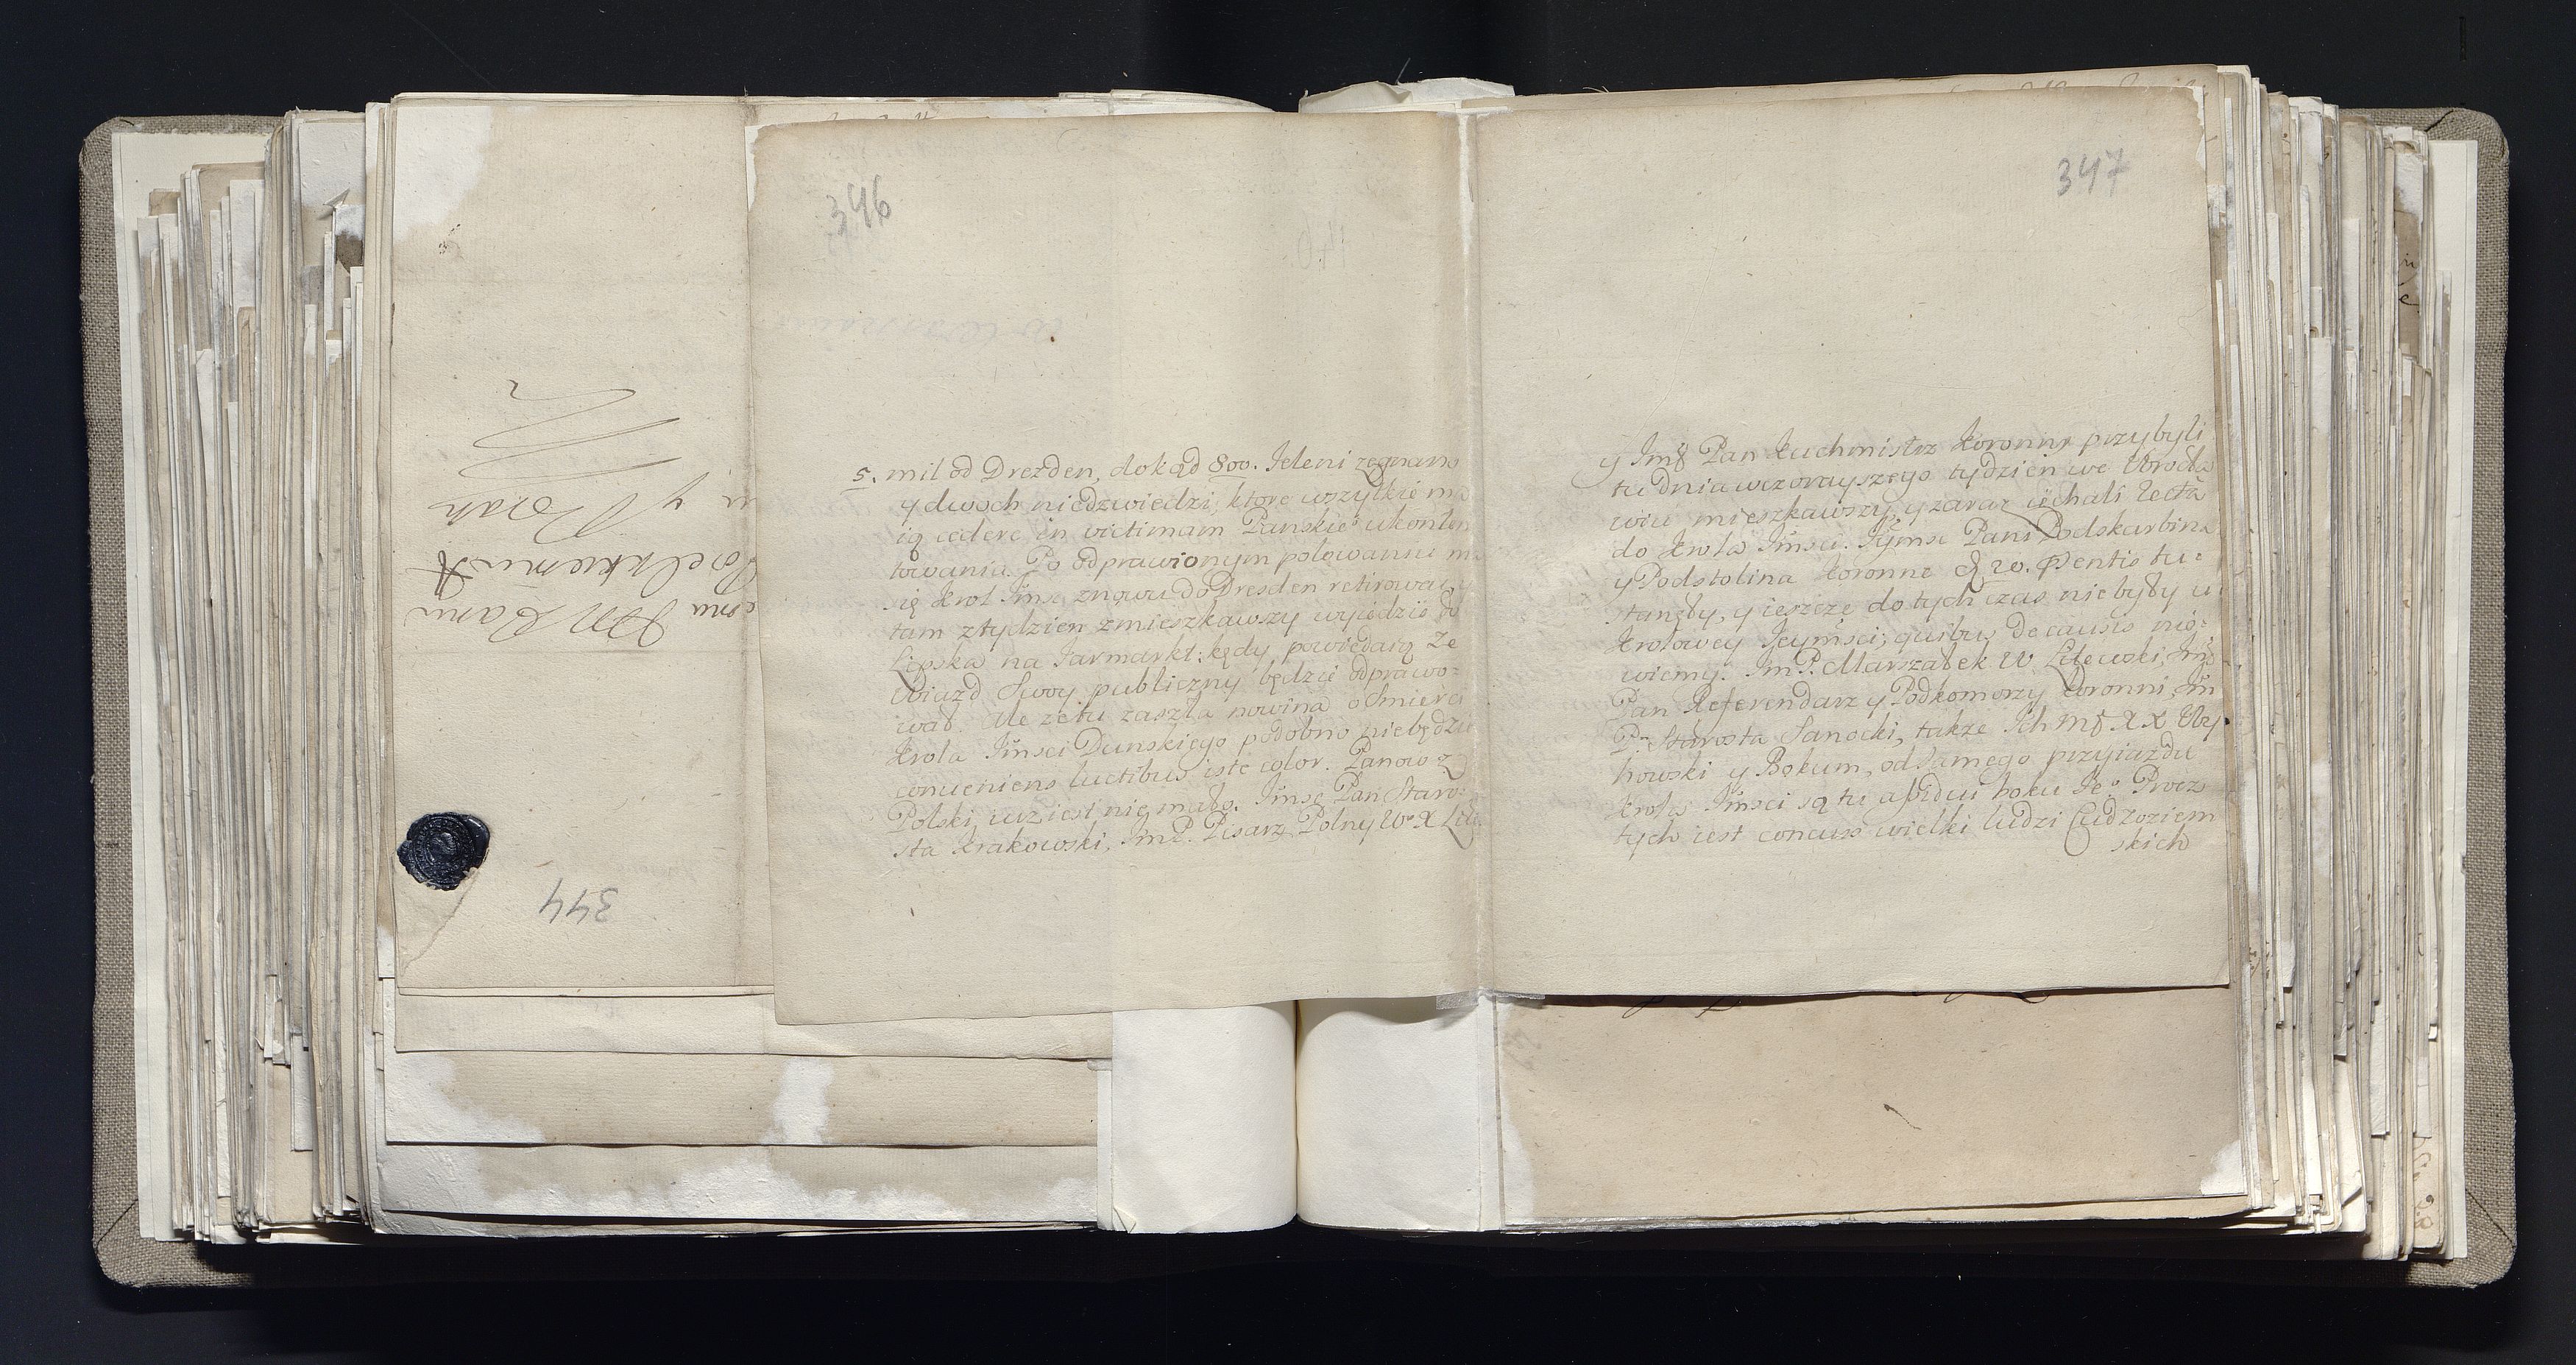 346
5. mil od Drezden, dokąd 800. Jeleni zegnano
y dwoch niedzwiedzi, ktore wszytkie ma
ią cedere in victimam Panskie° ukonten
towania. Po odprawionym polowaniu ma
się Krol Jmsc znowu do Dresden retirować, y
tam z tydzien zmieszkawszy wyiedzie do
Lipska na Jarmark: kędy powiedaią ze
Wiazd Swoy publiczny będzie odprawo-
wał. Ale ze tu zaszła nowina o Smierci
Krola Jmsci Dunskiego podobno niebędzie
conveniens luctibus iste color. Panow z
Polski, iuz iest nie mało. Jmsc Pan Staro-
sta Krakowski, JmP. Pisarz Polny W° X Litt
347
y Jmsc Pan Kuchmistrz Koronny przybyli
tu dnia wczorayszego tydzien we Wrocła
wiu mieszkawszy, y zaraz iechali recta
do Krola Jmsci. Jeymsc Pani Podskarbina
y Podstolina Koronne 20. Pentis tu-
stanęły, y ieszcze do tych czas niebyły u
Krolowey Jeymsci; quibus de causis nie-
wiemy. JmP. Marszałek W Litewski, Jmsc
Pan Referendarz y Podkomorzy Koronni, Jm
Pn Starosta Sanocki, takze Ich Mść XX Wy-
howski y Bokum, od samego przyiazdu
Krola Jmsci są tu assidui boku Je° Procz
tych iest concurs wielki ludzi Cudzoziem
skich
344